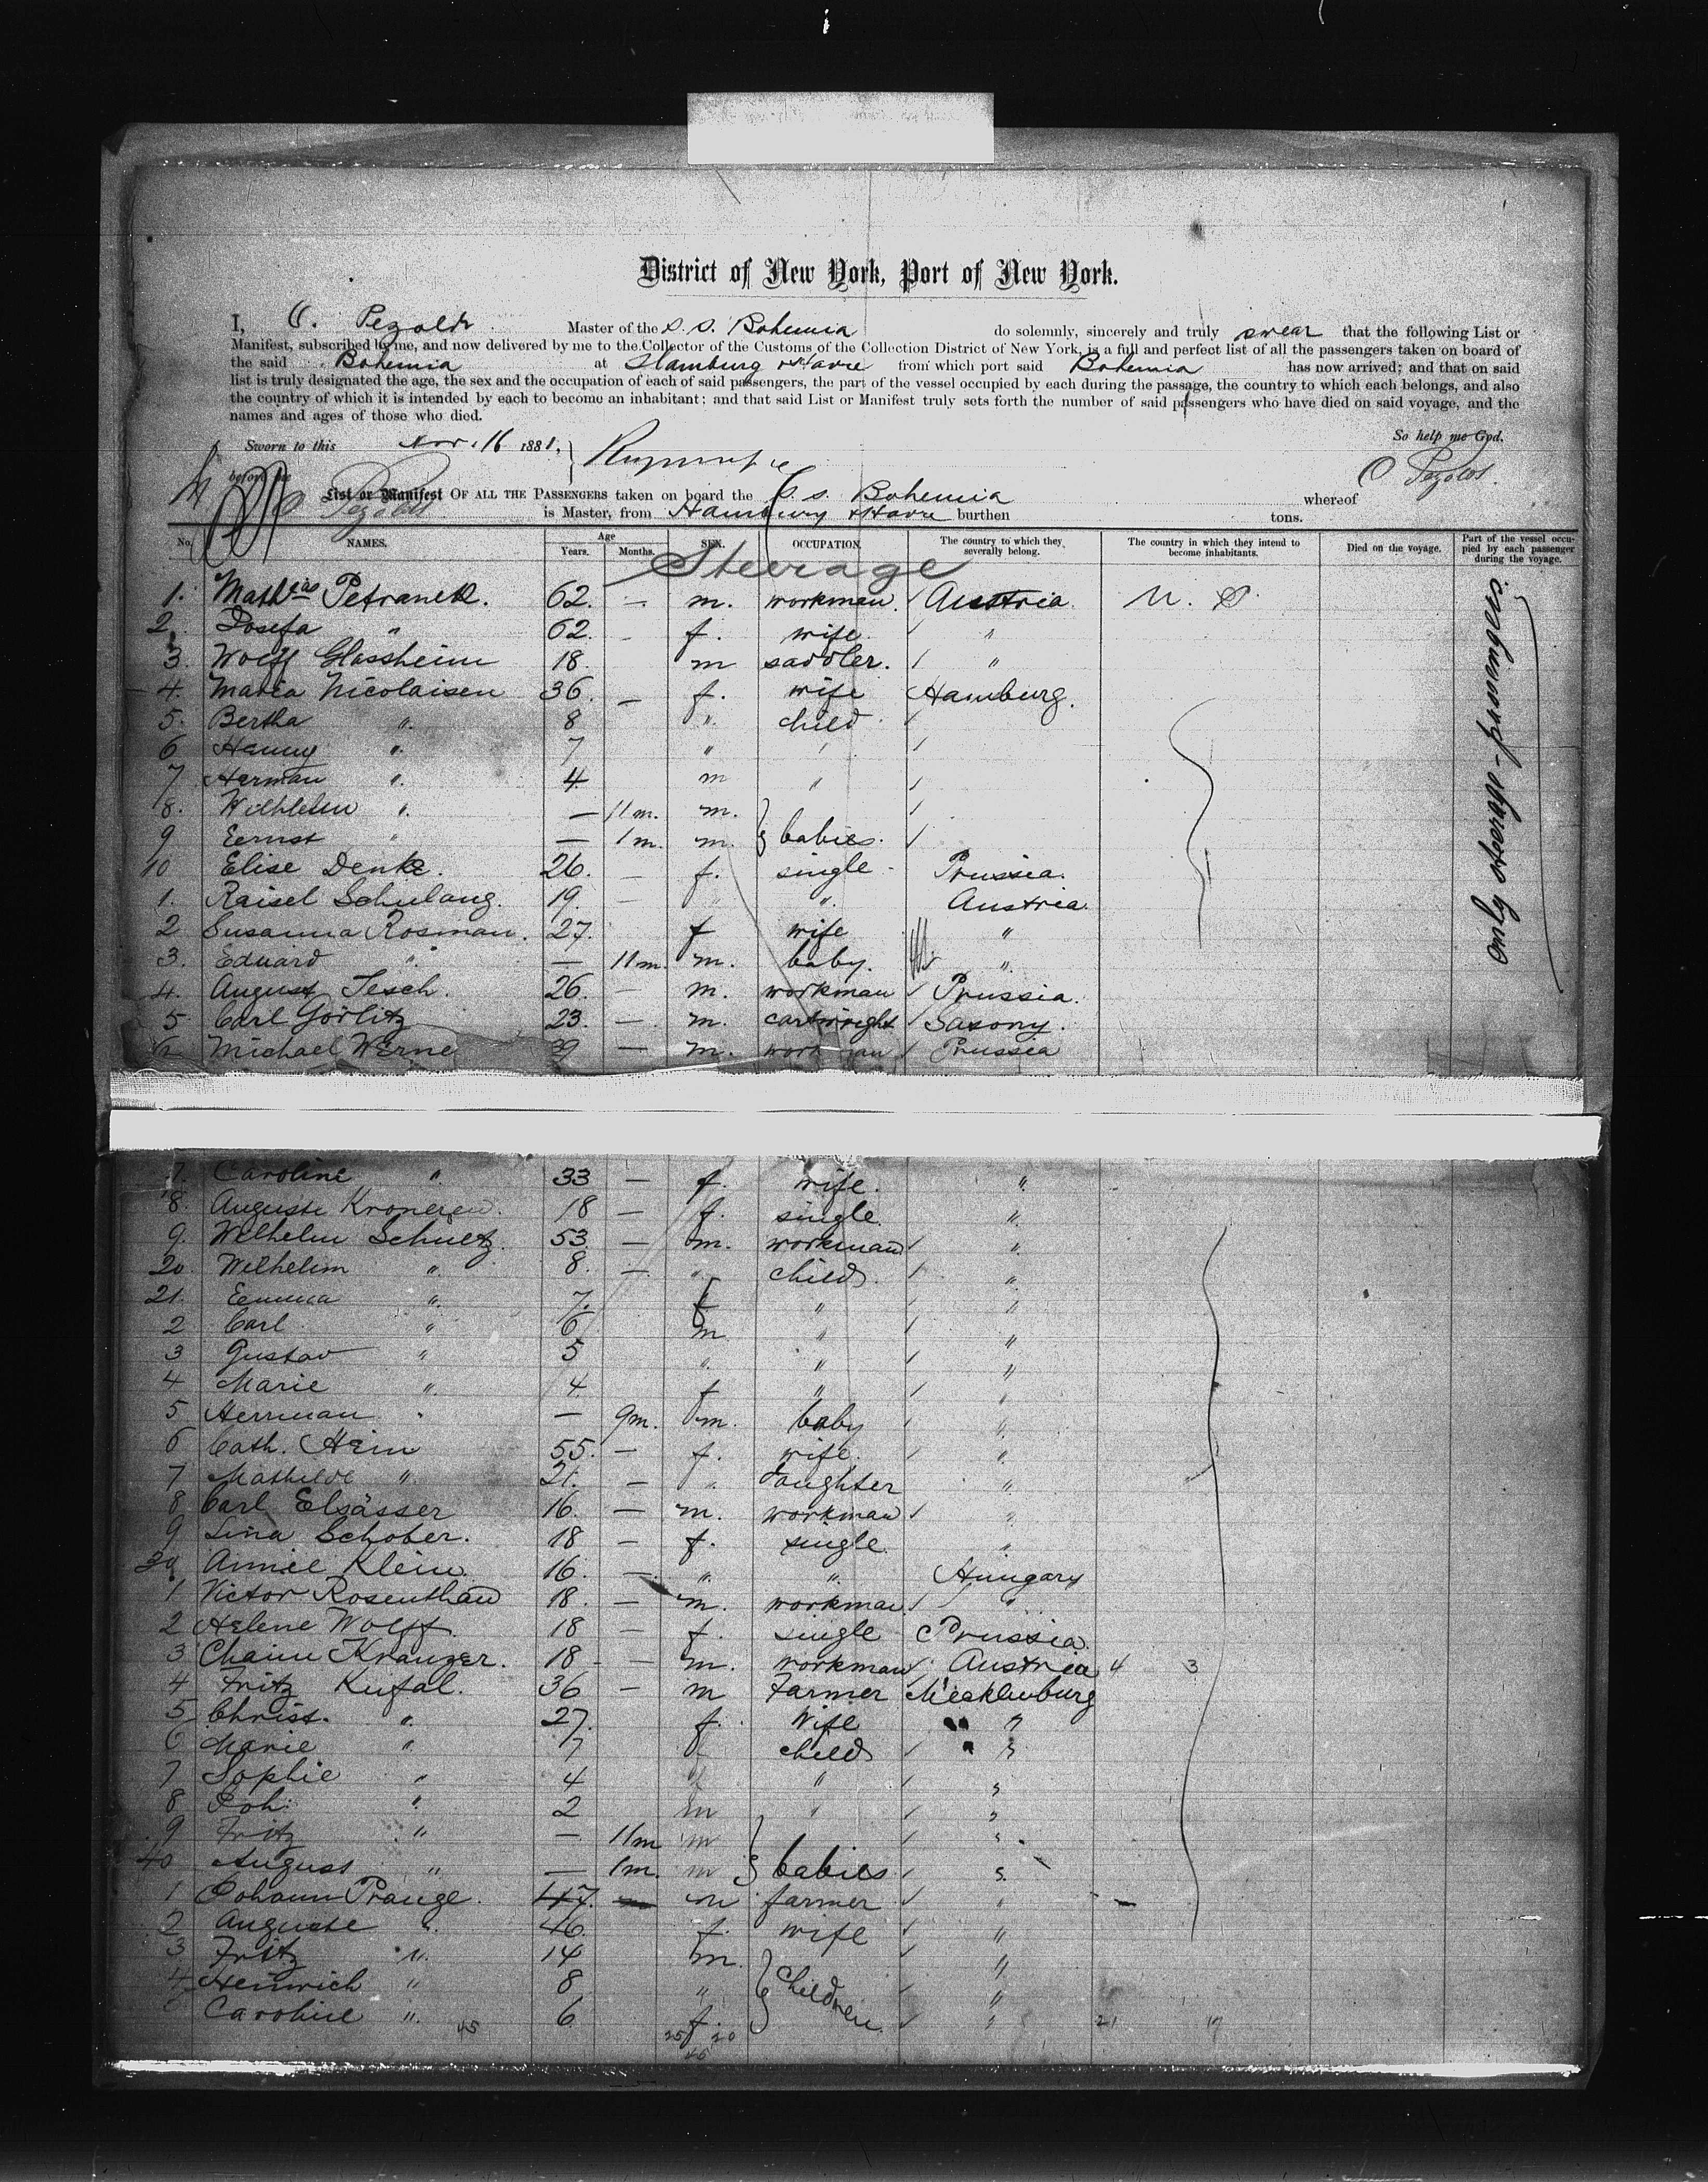 District of New York, Port of New York.
I, O. Pezoldt Master of the S. S. Bohemia do solemnly, sincerely and truly swear that the following List or
Manifest, subscribed by me, and now delivered by me to the Collector of the Customs of the Collection District of New York, is a full and perfect list of all the passengers taken on board of
the said Bohemia at Hamburg & Havre from which port said Bohemia has now arrived; and that on said
list is truly designated the age, the sex and the occupation of each of said passengers, the part of the vessel occupied by each during the passage, the country to which each belongs, and also
the country of which it is intended by each to become an inhabitant; and that said List or Manifest truly sets forth the number of said passengers who have died on said voyage, and the
names and ages of those who died.
So help me God.
Sworn to this Nov. 16 1881,
before me
O Pezoldt.
List or Manifest OF ALL THE PASSENGERS taken on board the S. S. Bohemia whereof
Pezoldt is Master, from Hamburg & Havre burthen tons.
No. NAMES. Age Years. Months. SEX. OCCUPATION. The country to which they severally belong. The country in which they intend to become inhabitants. Died on the voyage. Part of the vessel occupied by each passenger during the voyage.
Steerage
only steerage-passengers.
1. Mathias Petranek. 62. — m. workman Austria. U. S.
2. Josefa " 62. - f. wife "
3. Wolff Glassheim 18. m saddler. "
4. Maria Nicolaisen 36. - f. wife Hamburg.
5. Bertha " 8 " child
6 Hanny " 7 "
7 Herman " 4 m "
8. Wilhlelm " — 11m. m.
9 Eernst " — 1m. m. babies.
10 Elise Denke. 26. - f. single Prussia.
1. Raisel Schulang. 19. - " " Austria.
2 Susanna Rosman. 27. f wife "
3. Eduard " — 11m. m. baby. "
4. August Tesch. 26. — m. workman Prussia.
5 Carl Görlitz 23. — m. cartwright Saxony.
6 Michael Werne 39 — m. workman Prussia
7. Caroline " 33 — f. wife. "
8. Auguste 18 — f. single. "
9. Wilhelm Schultz. 53. — m. workman "
20 Wilhelim " 8. — " child. "
21. Emma " 7. f " "
2 Carl " 6 m " "
3 Gustav " 5 " " "
4 Marie " 4 f " "
5 Herrman " — 9m. m. baby "
6 Cath. Hein 55. — f. wife. "
7 Mathilde " 21. — " daughter "
8 Carl Elsässer 16. — m. workman "
9 Lina Schober. 18 — f. single "
30 Annie Klein. 16. — " " Hungary
1 Victor Rosenthan 18. — m. workman "
2 Helene Wolff 18 — f. single Prussia.
3 Chaim Kranzer. 18 - — m. workman Austria 4 3
4 Fritz Kufal. 36 — m Farmer Mecklenburg
5 Christ. " 27. f. Wife "
6 Marie " 7 f child "
7 Sophie " 4 f " "
8 Joh. " 2 m " "
9 Fritz " — 11m m "
40 August " — 1m. m babies "
1 Johann Prange. 47. — m farmer "
2 Auguste " 46. f. wife "
3 Fritz " 14 m. "
4 Heinrich " 8 " Children. "
5 Caroline " 6 f. " 21 17
45 25 20
45